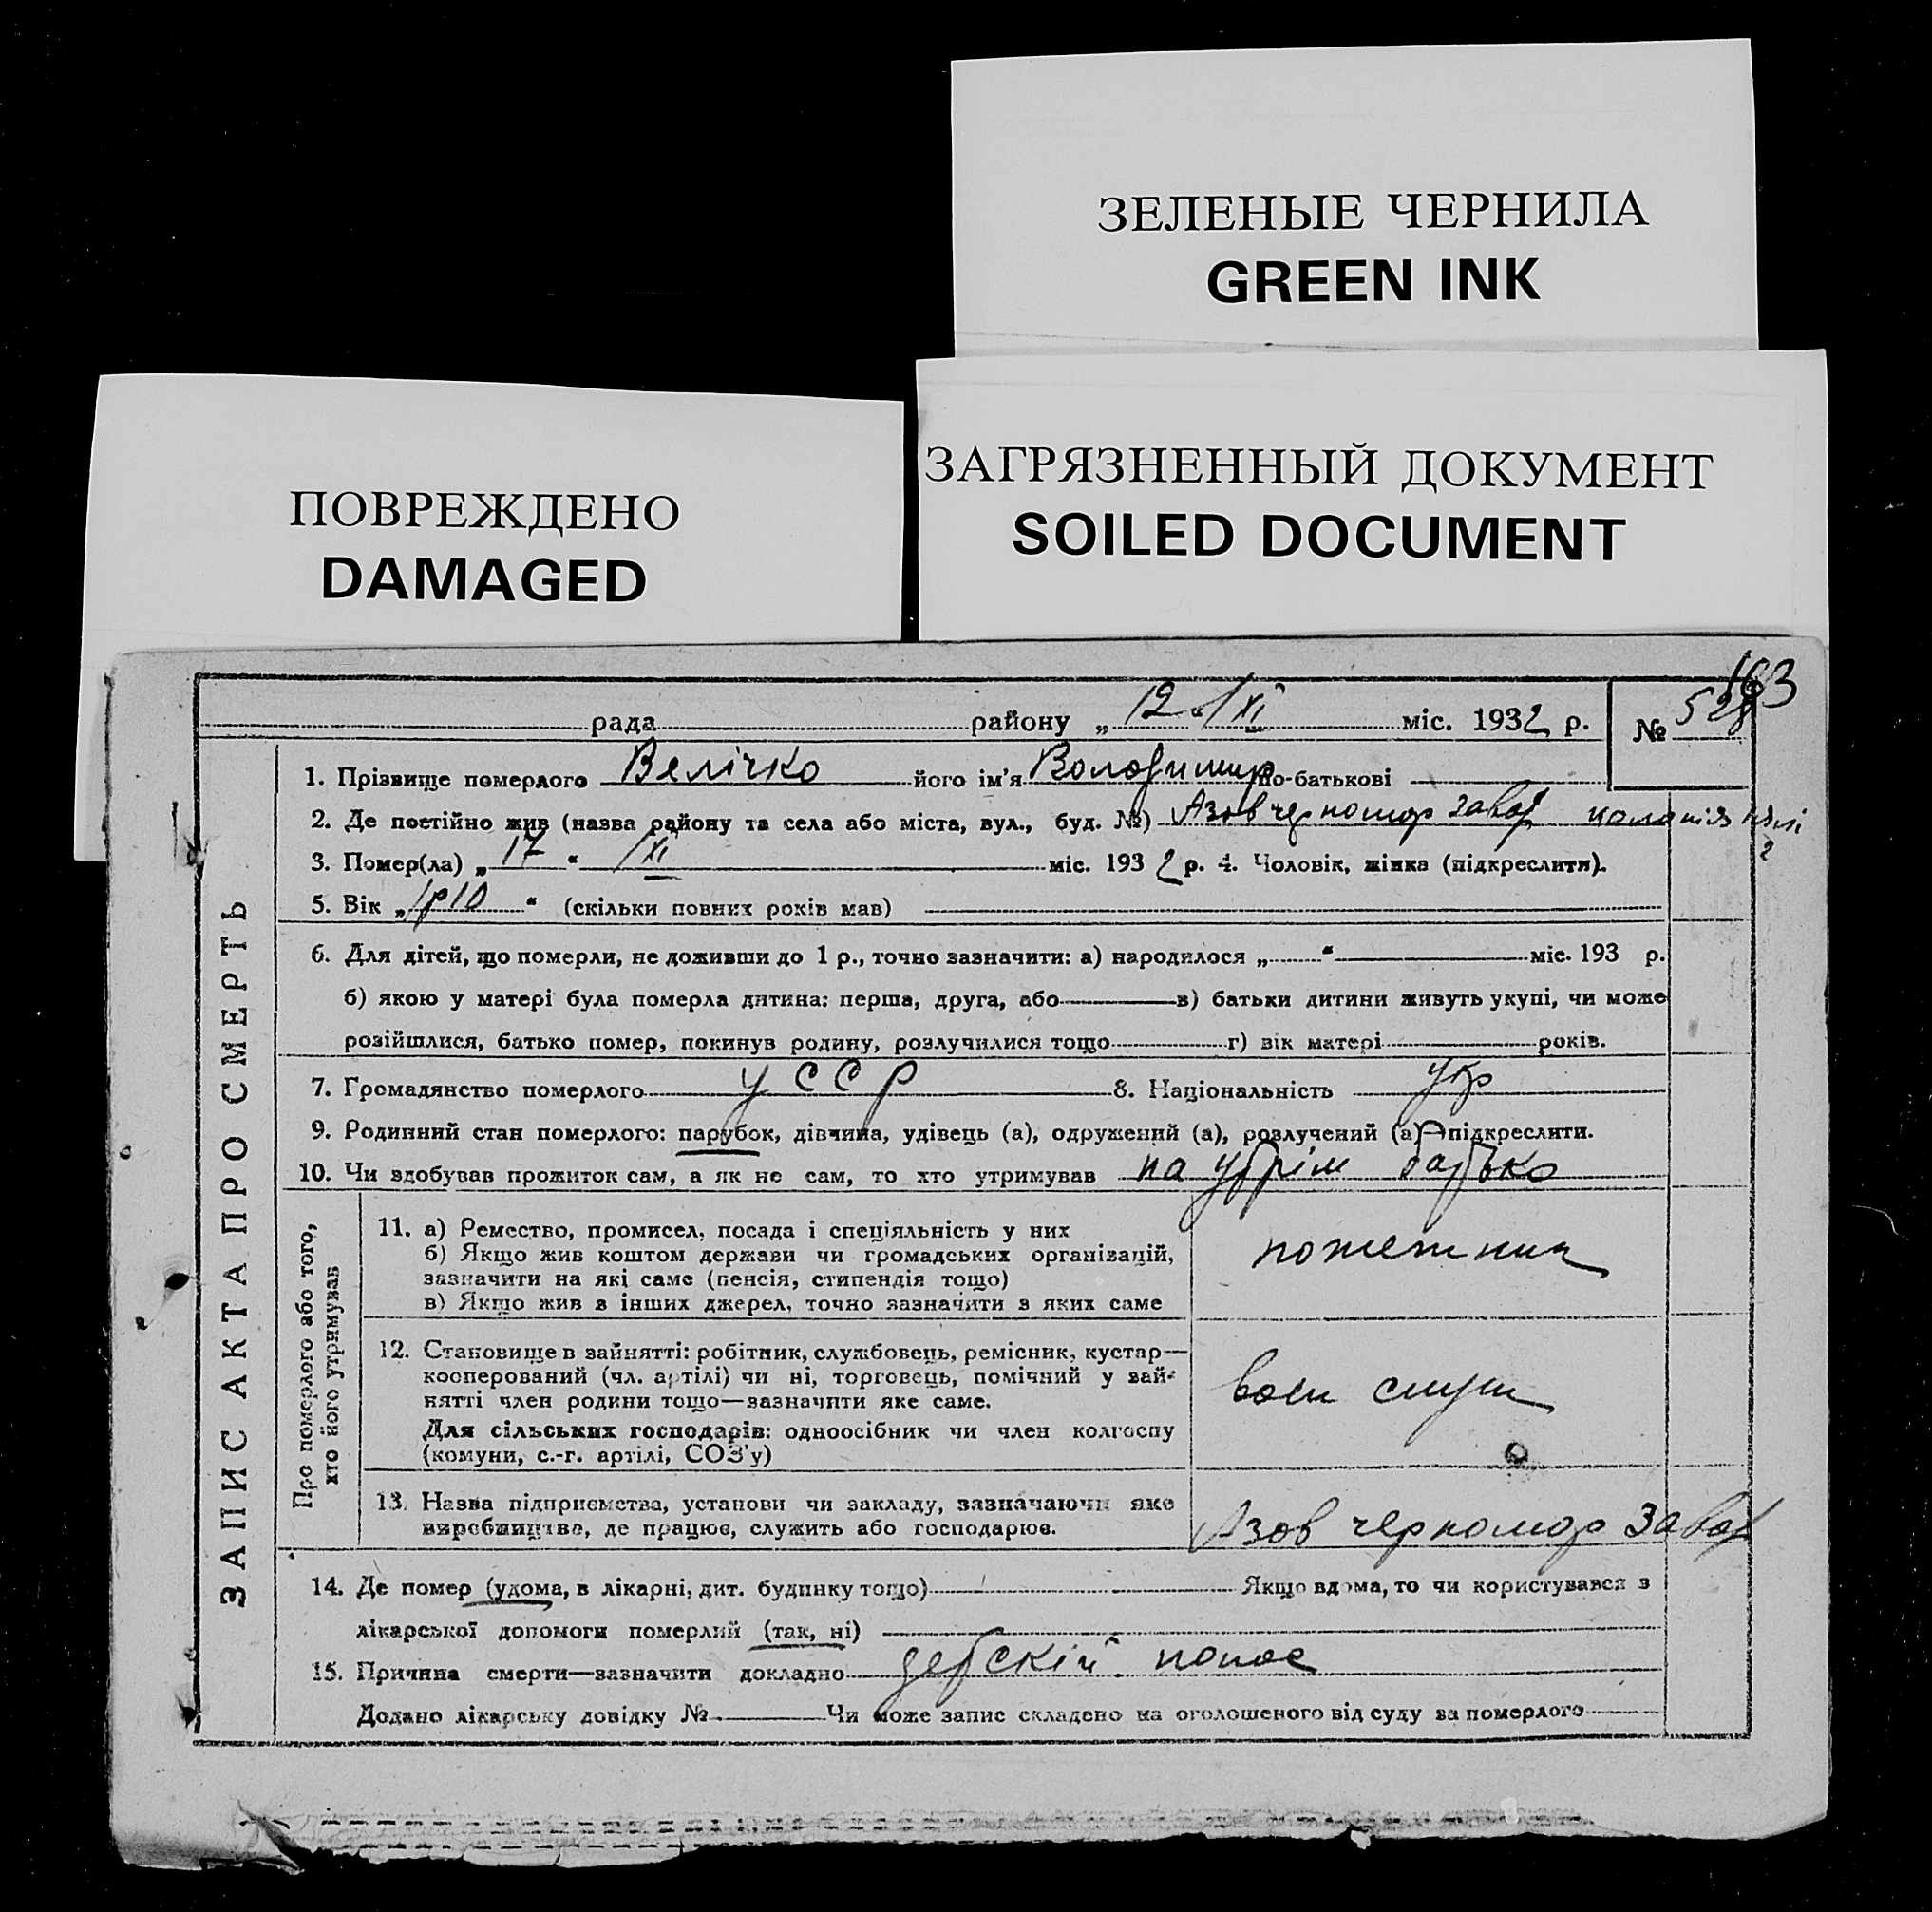 ЗЕЛЕНЫЕ ЧЕРНИЛА
GREEN INK
ЗАГРЯЗНЕННЫЙ ДОКУМЕНТ
SOILED DOCUMENT
ПОВРЕЖДЕНО
DAMAGED
163
рада району „12“ /XI міс. 1932 р. № 528
1. Прізвище померлого Велічко його ім'я Володимир по-батькові
2. Де постійно жив (назва району та села або міста, вул., буд. №) Азов черномор завод
3. Помер(ла) „17“ /XI міс. 1932 р. 4. Чоловік, жінка (підкреслити).
5. Вік „1р10“ (скільки повних років мав)
6. Для дітей, що померли, не доживши до 1 р., точно зазначити: а) народилося „ “ міс. 193 р.
б) якою у матері була померла дитина: перша, друга, або в) батьки дитини живуть укупі, чи може
розійшлися, батько помер, покинув родину, розлучилися тощо г) вік матері років.
7. Громадянство померлого УССР 8. Національність укр
9. Родинний стан померлого: парубок, дівчина, удівець (а), одружений (а), розлучений (а)—підкреслити.
10. Чи здобував прожиток сам, а як не сам, то хто утримував батько
ЗАПИС АКТА ПРО СМЕРТЬ
Про померлого або того,
хто його утримував
11. а) Ремество, промисел, посада і спеціяльність у них
б) Якщо жив коштом держави чи громадських організацій,
зазначити на які саме (пенсія, стипендія тощо)
в) Якщо жив з інших джерел, точно зазначити з яких саме
пожежник
12. Становище в зайнятті: робітник, службовець, ремісник, кустар—
кооперований (чл. артілі) чи ні, торговець, помічний у зай-
нятті член родини тощо—зазначити яке саме.
Для сільських господарів: одноосібник чи член колгоспу
(комуни, с.-г. артілі, СОЗ'у)
13. Назва підприємства, установи чи закладу, зазначаючи яке
виробництво, де працює, служить або господарює.
Азов черномор завод
14. Де помер (удома, в лікарні, дит. будинку тощо) Якщо вдома, то чи користувався з
лікарської допомоги померлий (так, ні)
15. Причина смерти—зазначити докладно понос
Додано лікарську довідку № Чи може запис складено на оголошеного від суду за померлого